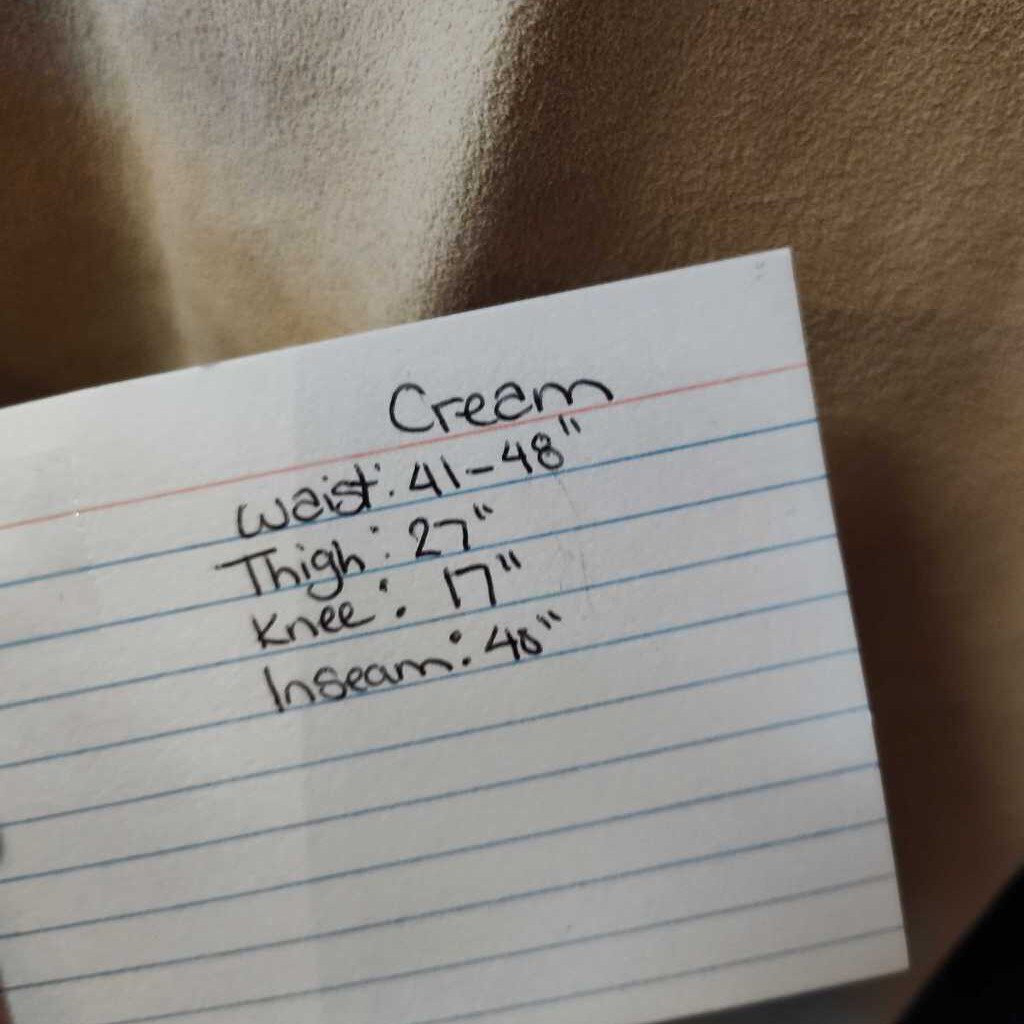 Cream
Waist: 41-48"
Thigh: 27"
Knee: 17"
Inseam: 40"